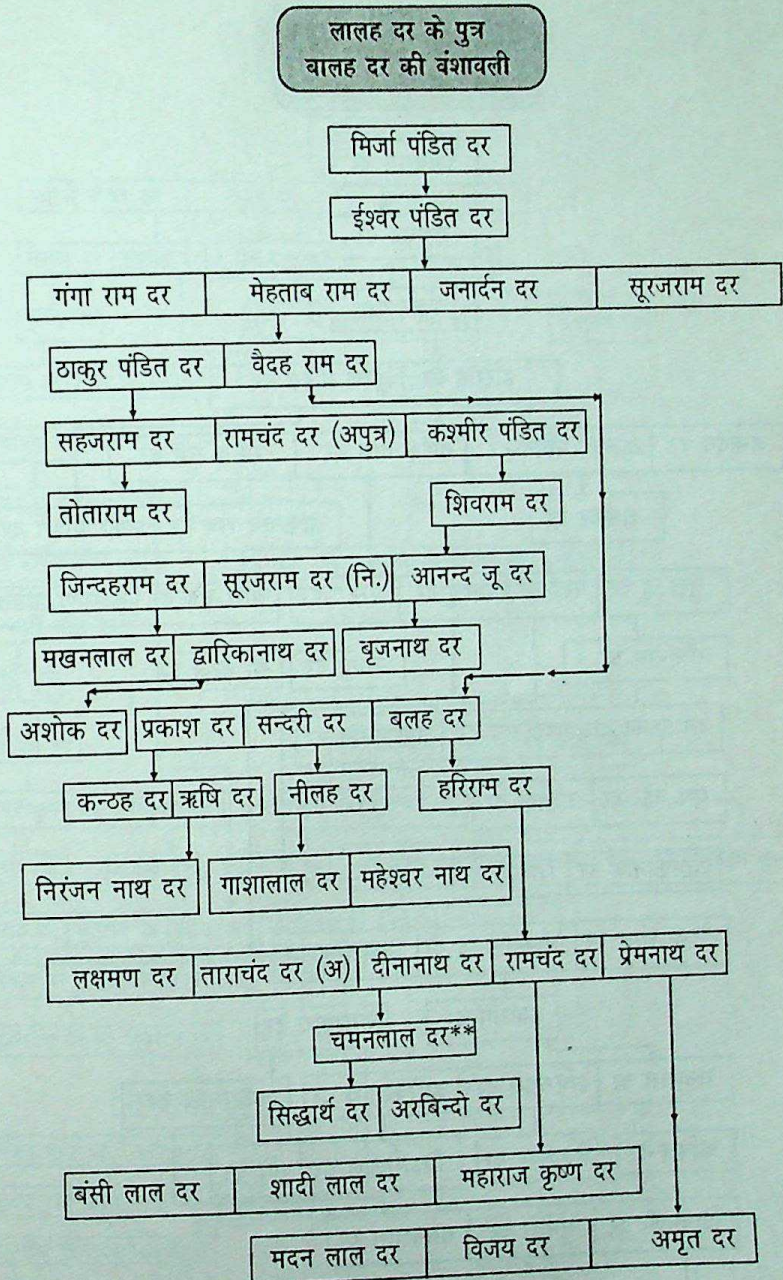 लालह दर के पुत्र
बालह दर की वंशावली
मिर्जा पंडित दर
ईश्वर पंडित दर
गंगा राम दर मेहताब राम दर जनार्दन दर सूरजराम दर
ठाकुर पंडित दर वैदह राम दर
सहजराम दर रामचंद दर (अपुत्र) कश्मीर पंडित दर
तोताराम दर शिवराम दर
जिन्दहराम दर सूरजराम दर (नि.) आनन्द जू दर
मखनलाल दर द्वारिकानाथ दर बृजनाथ दर
अशोक दर प्रकाश दर सन्दरी दर बलह दर
कन्ठह दर ऋषि दर नीलह दर हरिराम दर
निरंजन नाथ दर गाशालाल दर महेश्वर नाथ दर
लक्षमण दर ताराचंद दर (अ) दीनानाथ दर रामचंद दर प्रेमनाथ दर
चमनलाल दर**
सिद्धार्थ दर अरबिन्दो दर
बंसी लाल दर शादी लाल दर महाराज कृष्ण दर
मदन लाल दर विजय दर अमृत दर